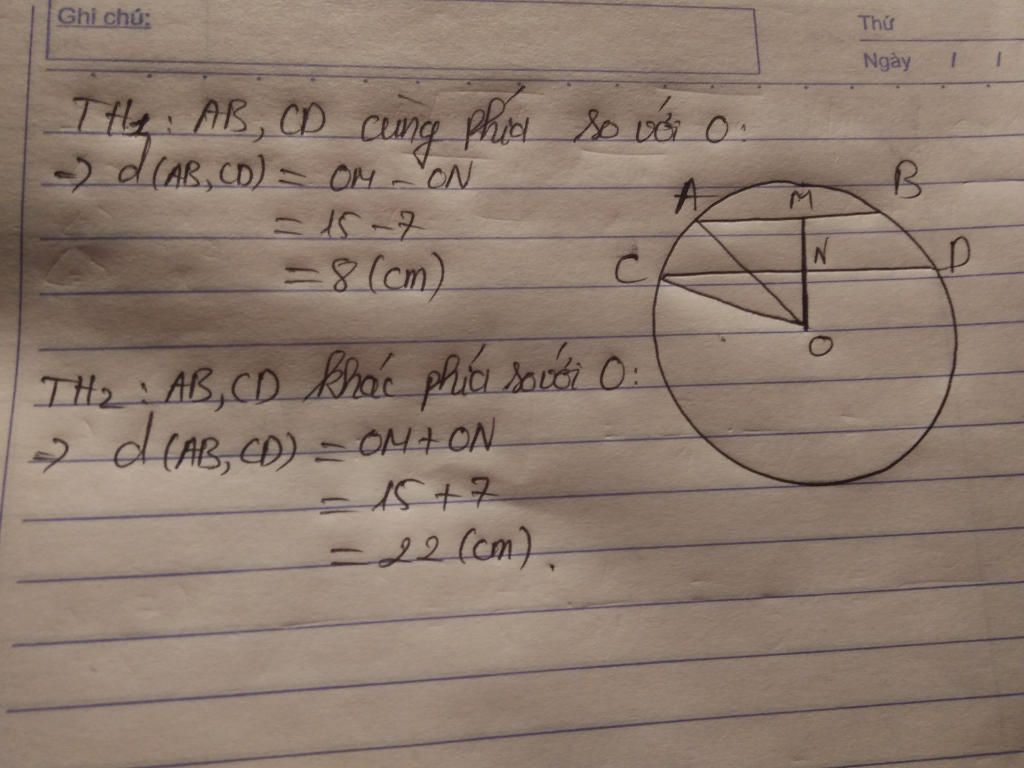 Ghi chú:
Thứ
Ngày / /
TH1: AB, CD cùng phía so với O:
=> d(AB, CD) = OM - ON
= 15 - 7
= 8 (cm)
A M B
C N D
O
TH2: AB, CD khác phía so với O:
=> d(AB, CD) = OM + ON
= 15 + 7
= 22 (cm).